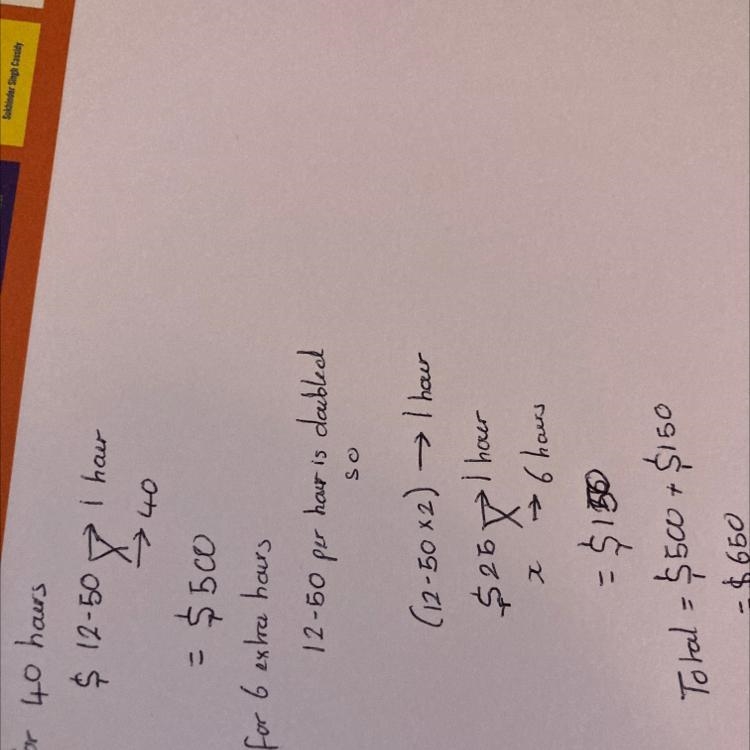 Sukhinder Singh Cassidy
or 40 hours
$ 12-50 → 1 hour
→ 40
= $500
for 6 extra hours
12-50 per hour is doubled
so
(12-50 x 2) → 1 hour
$ 25 → 1 hour
x → 6 hours
= $150
Total = $500 + $150
= $650